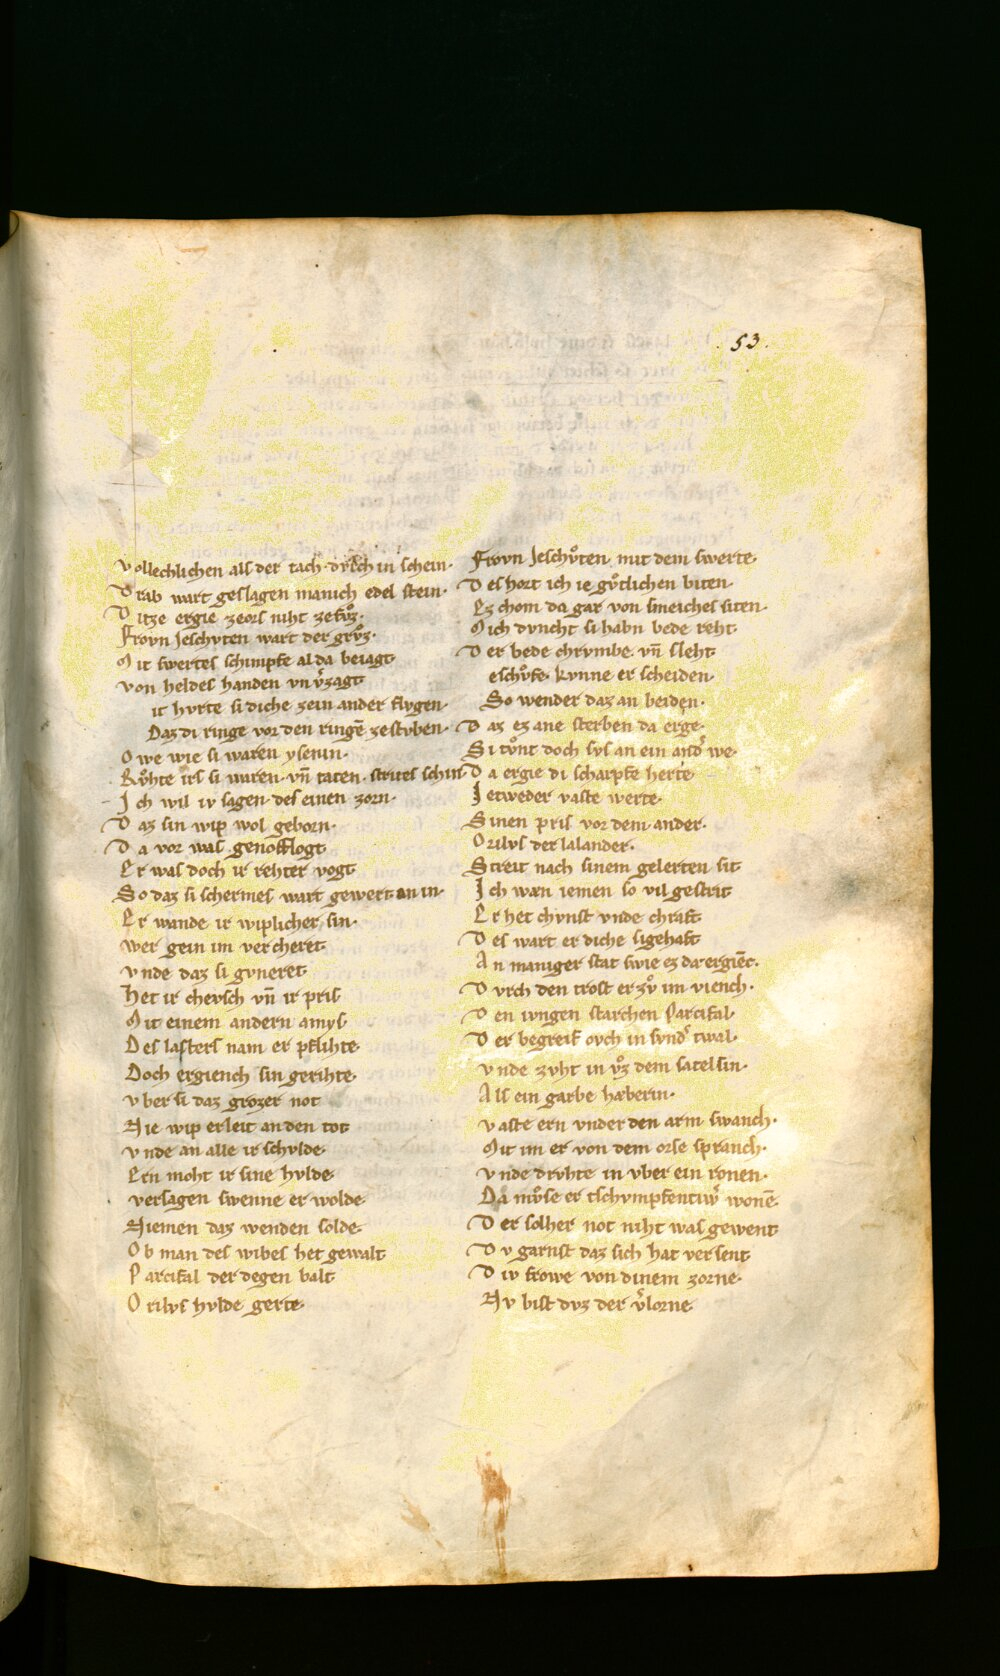 53.
vollechlichen als der tach dvrch in schein.
Drab wart geslagen manich edel stein.
Ditze ergie zeors niht zefvͦz.
Frovn Jeschvten wart der grvͦz.
Mit swertes schimpfe al da beiagt
von heldes handen vnv̓zagt
it hvrte si diche zein ander flvgen.
Daz di ringe vor den ringē zestvben.
Owe wie si waren ysenin.
Rvͦhte irs si waren. vn̄ taten. strites schin
Ich wil iv sagen des einen zorn.
Daz sin wip wol geborn.
Da vor was genoͤtzogt
Er was doch ir rehter vogt
So daz si schermes wart gewert an in.
Er wande ir wiplicher sin.
wer gein im vercheret
vnde daz si gvneret
Het ir chevsch vn̄ ir pris
Mit einem andern amys.
Des lasters nam er pflihte
Doch ergiench sin gerihte.
vber si daz grozer not
Nie wip erleit an den tot
vnde an alle ir schvlde.
Ern moht ir sine hvlde.
versagen swenne er wolde.
Niemen daz wenden solde.
Ob man des wibes het gewalt
Parcifal der degen balt
Orilvs hvlde gerte.
Frovn Jeschvͦten mit dem swerte.
Des hort ich ie gvͦtlichen biten.
Ez chom da gar von smeiches siten.
Mich dvncht si habn bede reht.
Der bede chrvmbe. vn̄ sleht
eschvͦfe. kvnne er scheiden.
So wender daz an beiden.
Daz ez ane sterben da erge.
Si tvͦnt doch svs an ein and̓ we.
Da ergie di scharpfe herte
Jetweder vaste werte.
Sinen pris vor dem ander.
Orilvs der lalander.
Streit nach sinem gelerten sit
Ich wæn iemen so vil gestrit
Er het chvnst vnde chraft
Des wart er diche sigehaft
An maniger stat swie ez da ergiēc.
Dvrch den trost er zvͦ im viench.
Den ivngen starchen Parcifal.
Der begreif ovch in svnd̓ twal.
vnde zvht in vͦz dem satel sin.
Als ein garbe hæberin.
vaste ern vnder den arm swanch.
Mit im er von dem orse spranch.
vnde drvhte in vber ein ronen.
Da mvͦse er tschvmpfentiw̓ wonē.
Der solher not niht was gewent
Dv garnst daz sich hat versent
Div frowe von dinem zorne.
Nv bist dvz der v̓lorne.